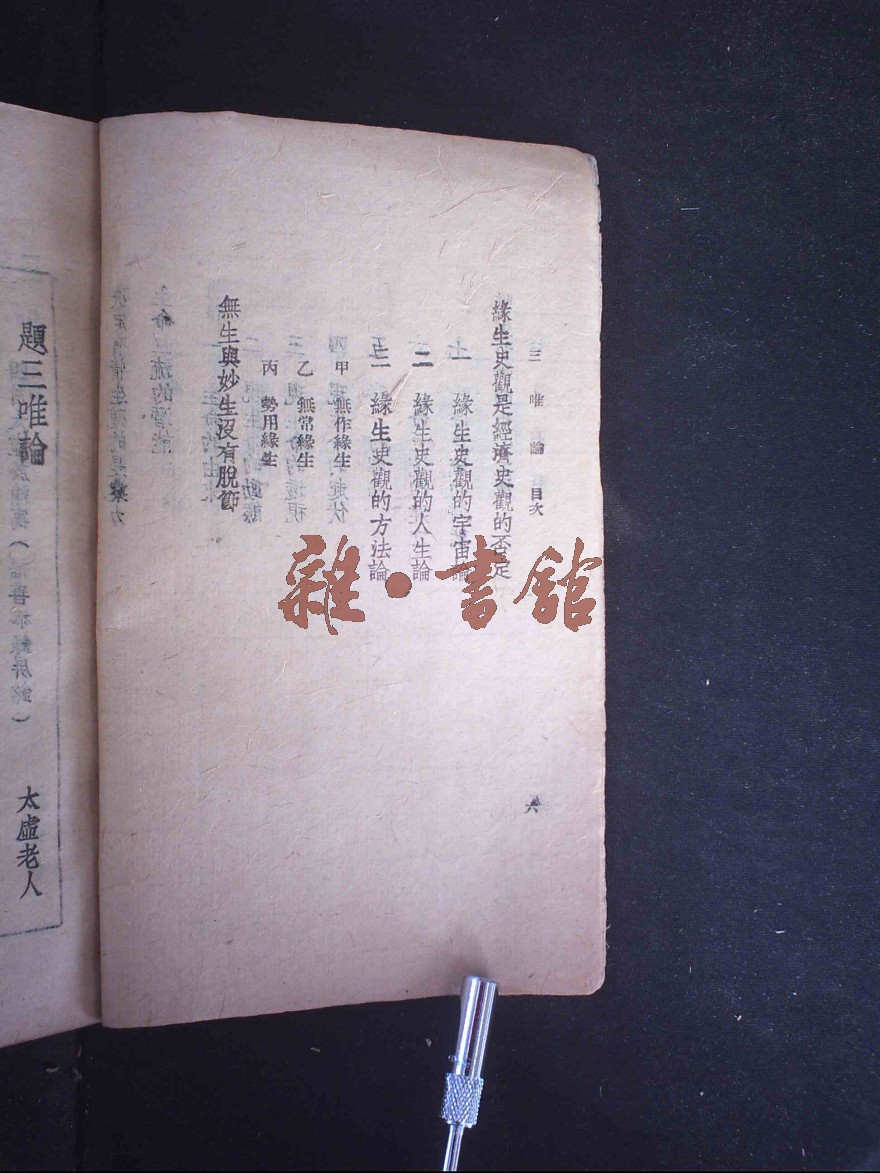 三唯論 目次
六
緣生史觀是經濟史觀的否定
一 緣生史觀的宇宙論
二 緣生史觀的人生論
三 緣生史觀的方法論
甲 無作緣生
乙 無常緣生
丙 勢用緣生
無生與妙生沒有脫節
雜·書館
題三唯論
太虛老人